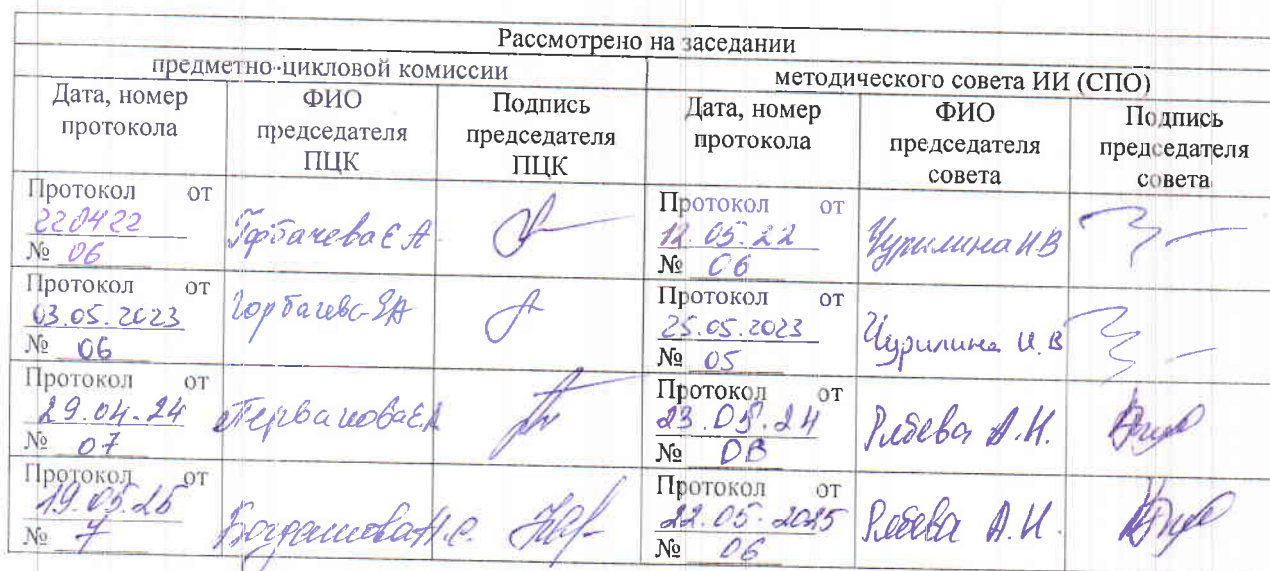 Рассмотрено на заседании
предметно-цикловой комиссии
методического совета ИИ (СПО)
Дата, номер протокола
ФИО председателя ПЦК
Подпись председателя ПЦК
Дата, номер протокола
ФИО председателя совета
Подпись председателя совета
Протокол от
220422
№ 06
Горбачева Е А
Протокол от
12.05.22
№ 06
Чурилина И В
Протокол от
03.05.2023
№ 06
Горбачева ЕА
Протокол от
25.05.2023
№ 05
Чурилина И. В
Протокол от
29.04.24
№ 07
Протокол от
23.05.24
№
А.И.
Протокол от
19.05.25
№ 7
Протокол от
22.05.2025
№ 06
А.И.